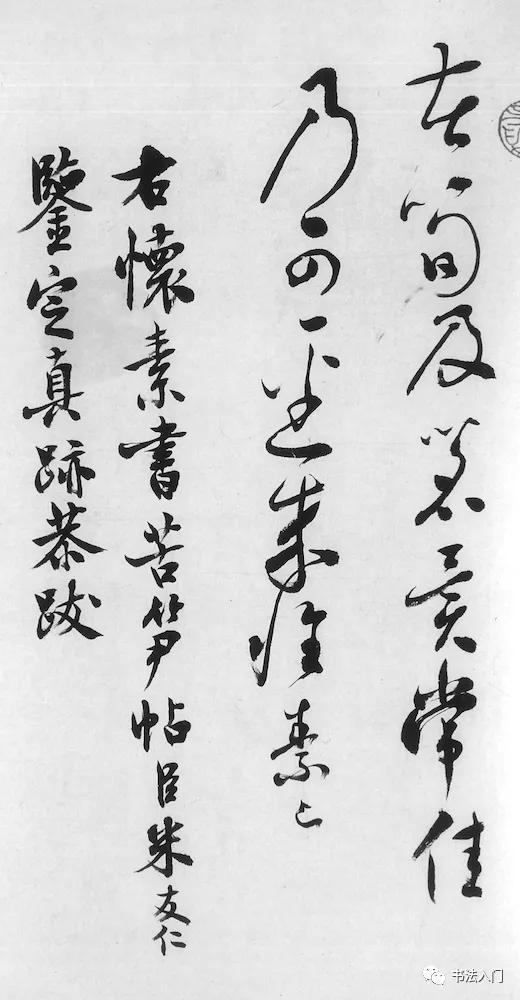 苦筍及茗異常佳
乃可逕來懷素上
右懷素書苦笋帖臣米友仁
鑒定真跡恭跋
书法入门